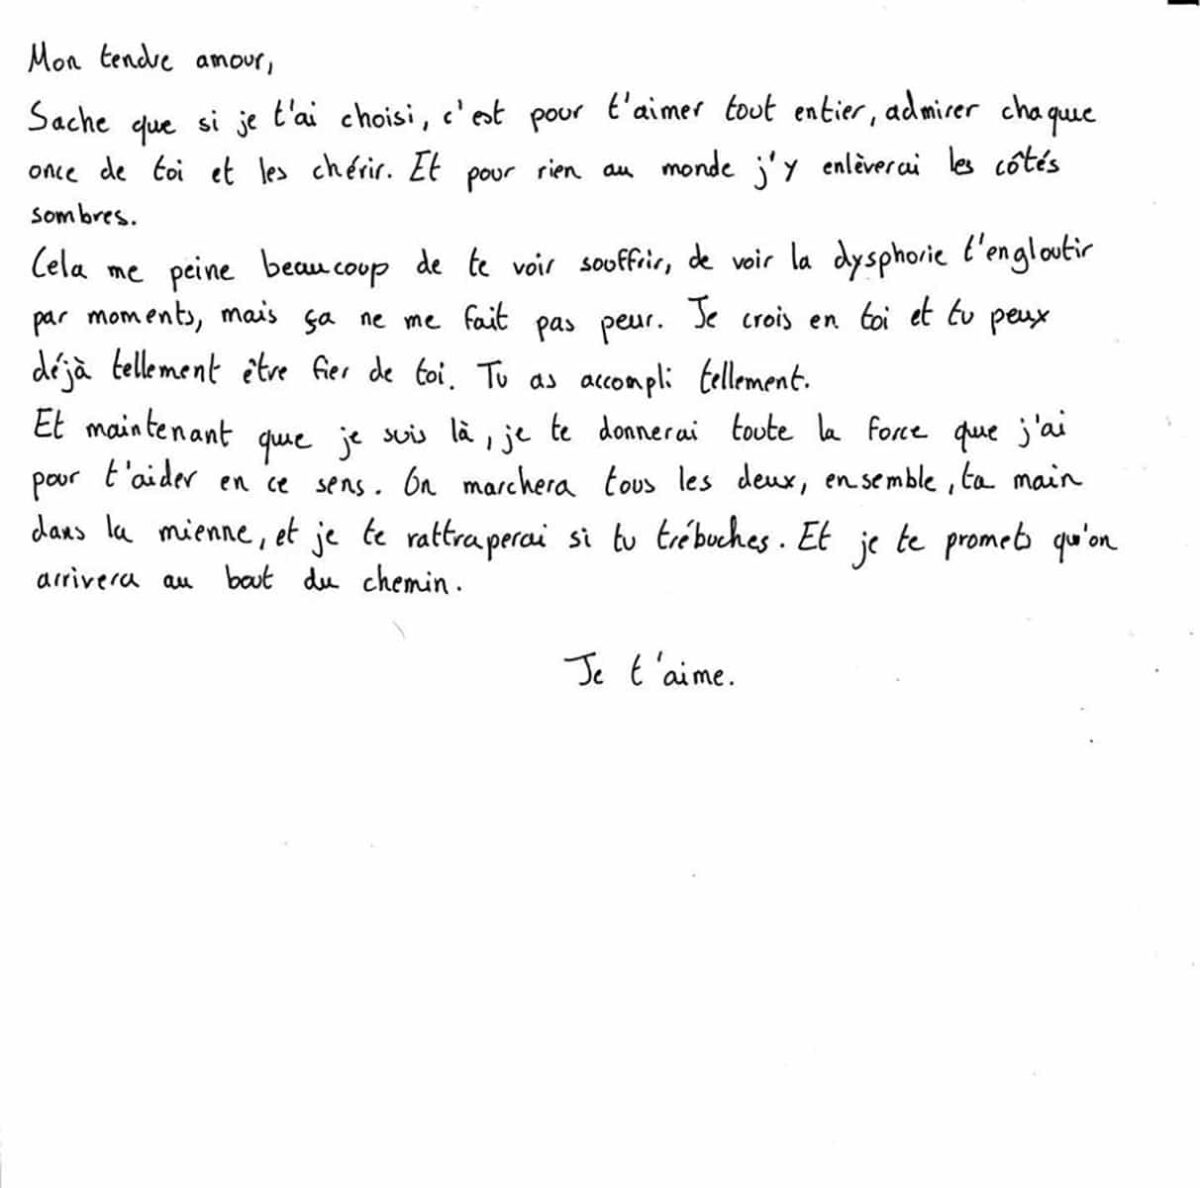 Mon tendre amour,
Sache que si je t'ai choisi, c'est pour t'aimer tout entier, admirer chaque
once de toi et les chérir. Et pour rien au monde j'y enlèverai les côtés
sombres.
Cela me peine beaucoup de te voir souffrir, de voir la dysphorie t'engloutir
par moments, mais ça ne me fait pas peur. Je crois en toi et tu peux
déjà tellement être fier de toi. Tu as accompli tellement.
Et maintenant que je suis là, je te donnerai toute la force que j'ai
pour t'aider en ce sens. On marchera tous les deux, ensemble, ta main
dans la mienne, et je te rattraperai si tu trébuches. Et je te promets qu'on
arrivera au bout du chemin.
Je t'aime.